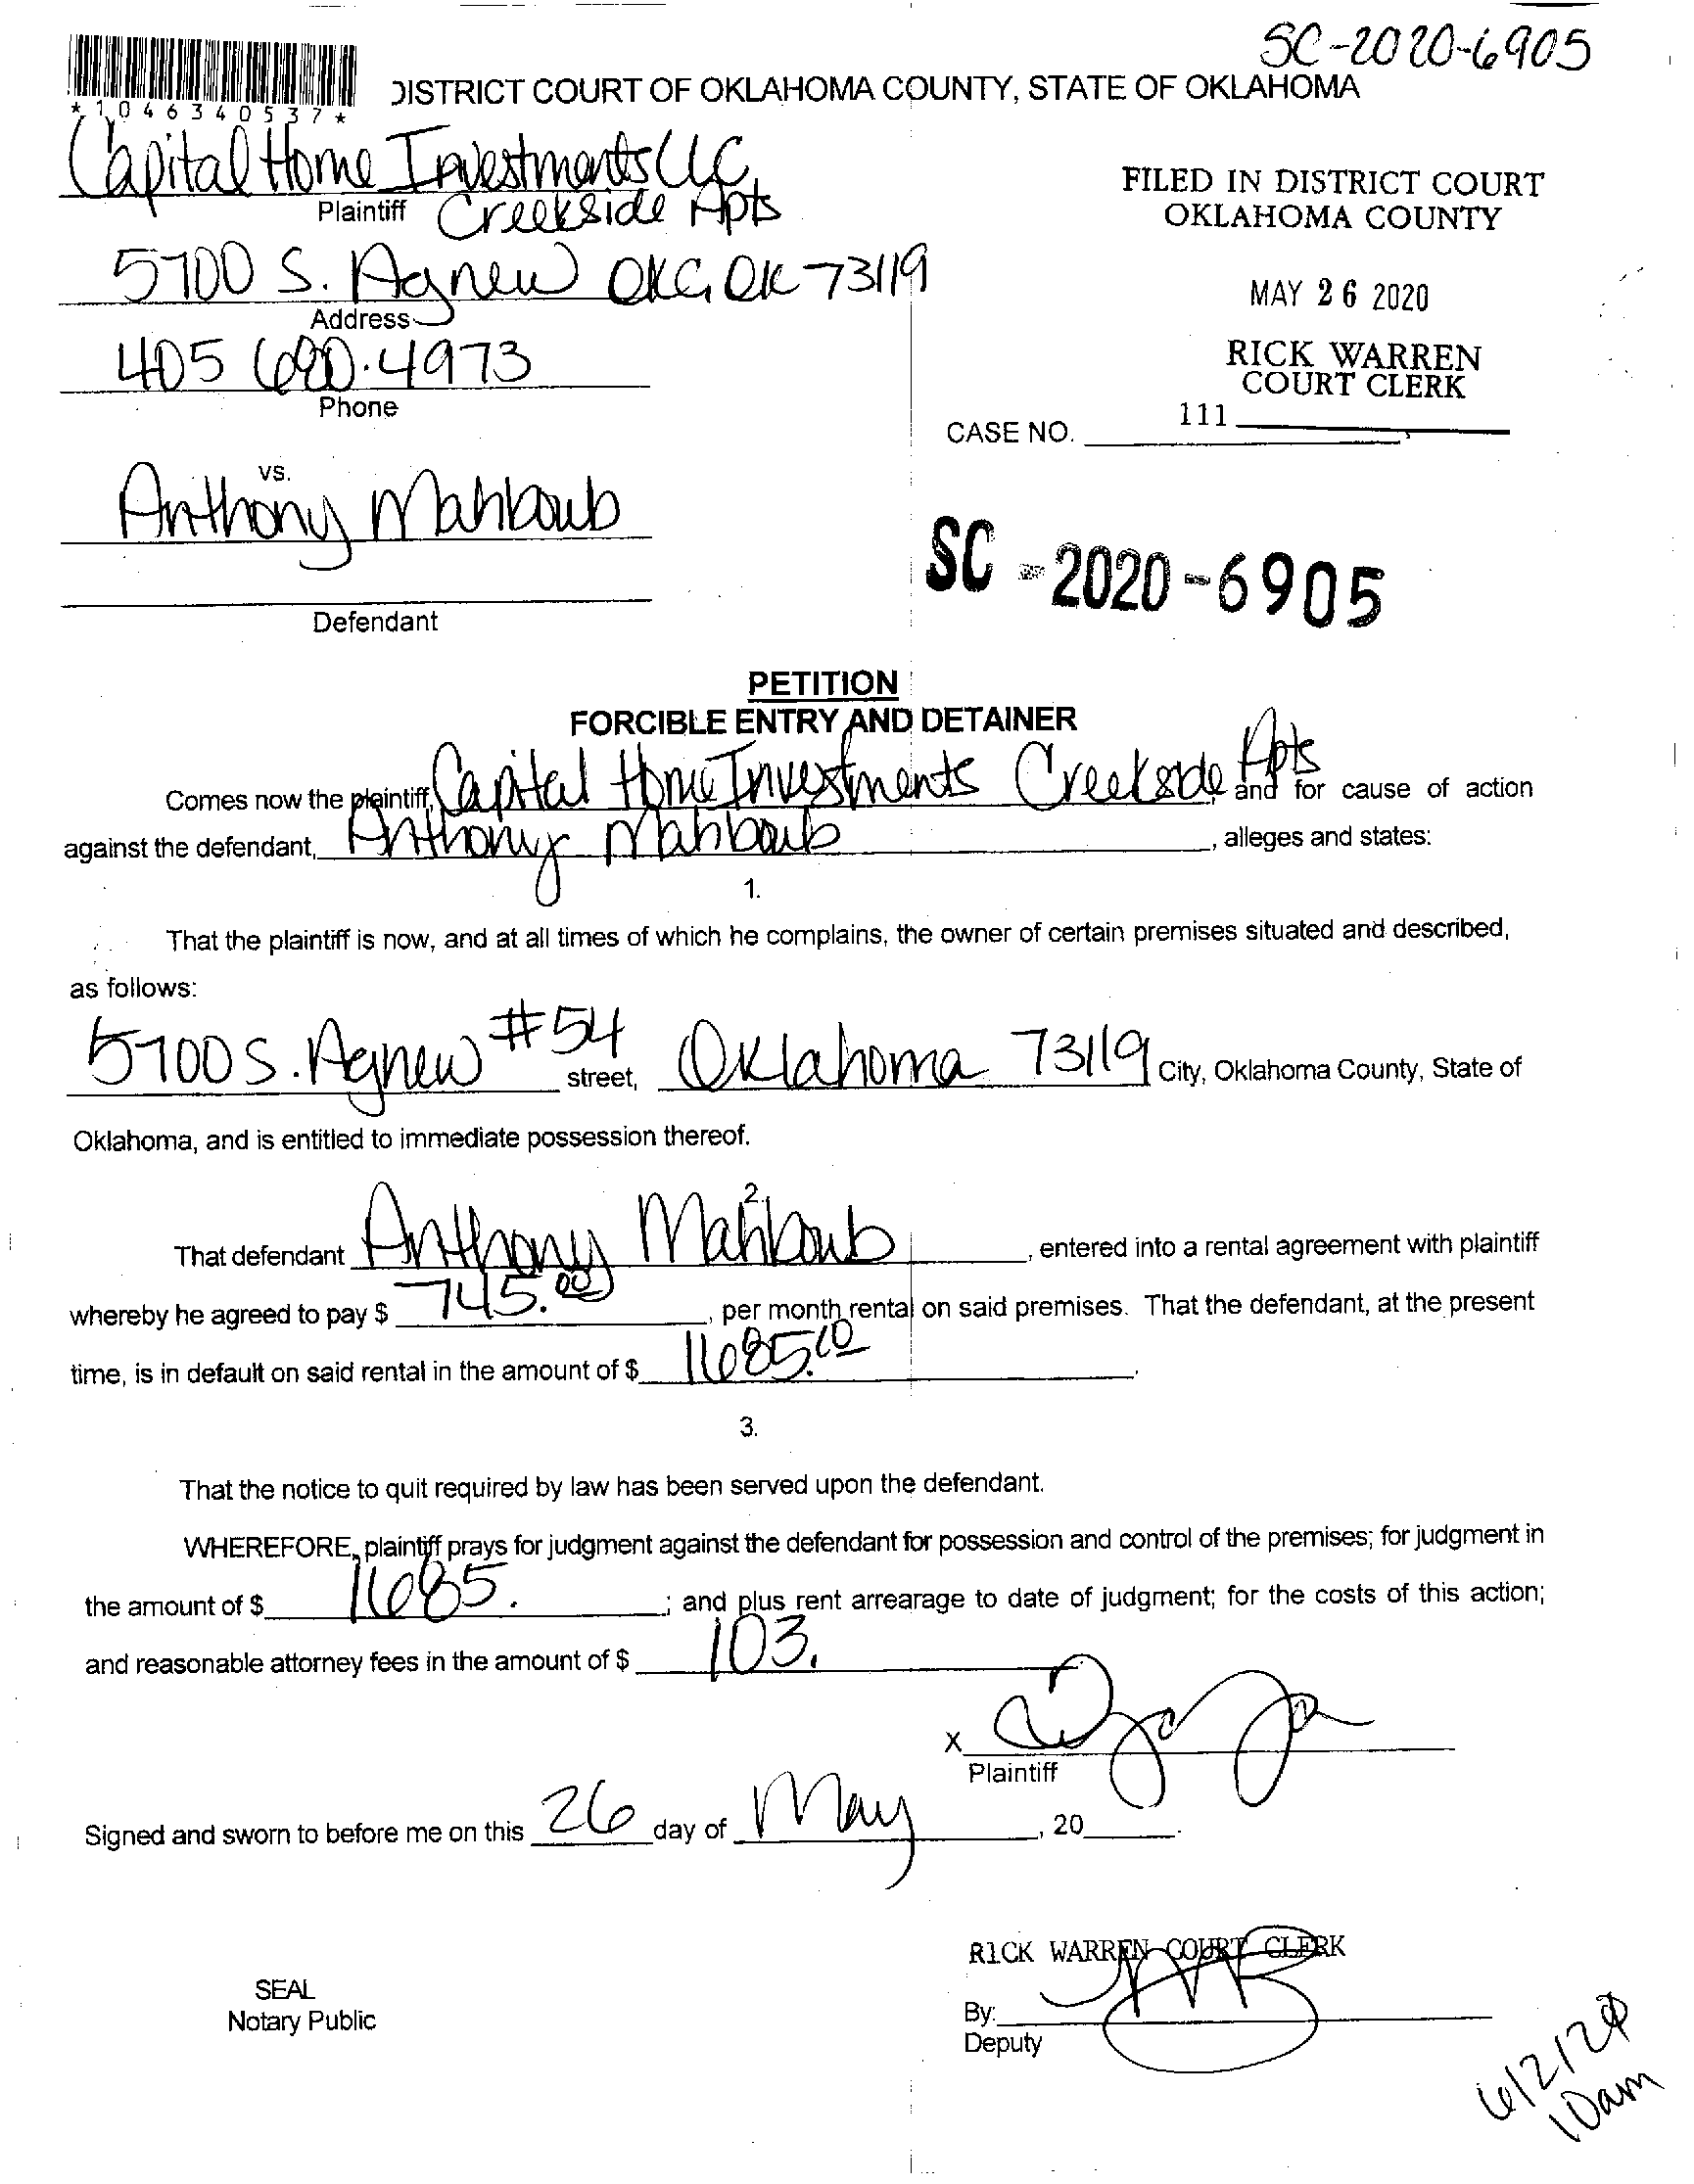 SC-2020-6905
*1046340537*
DISTRICT COURT OF OKLAHOMA COUNTY, STATE OF OKLAHOMA
Capital Home Investments LLC
Plaintiff Creekside Apts
5700 S. Agnew OKC, OK 73119
Address
405 680.4973
Phone
FILED IN DISTRICT COURT
OKLAHOMA COUNTY
MAY 26 2020
RICK WARREN
COURT CLERK
111
CASE NO.
vs.
Anthony Mahboub
Defendant
SC-2020-6905
PETITION
FORCIBLE ENTRY AND DETAINER
Comes now the plaintiff, Capital Home Investments Creekside Apts, and for cause of action
against the defendant, Anthony Mahboub, alleges and states:
1.
That the plaintiff is now, and at all times of which he complains, the owner of certain premises situated and described,
as follows:
5700 S. Agnew #54 street, Oklahoma 73119 City, Oklahoma County, State of
Oklahoma, and is entitled to immediate possession thereof.
2.
That defendant Anthony Mahboub, entered into a rental agreement with plaintiff
whereby he agreed to pay $ 745.00, per month rental on said premises. That the defendant, at the present
time, is in default on said rental in the amount of $ 1685.10.
3.
That the notice to quit required by law has been served upon the defendant.
WHEREFORE, plaintiff prays for judgment against the defendant for possession and control of the premises; for judgment in
the amount of $ 1685. ; and plus rent arrearage to date of judgment; for the costs of this action;
and reasonable attorney fees in the amount of $ 103.
X
Plaintiff
Signed and sworn to before me on this 26 day of May, 20
RICK WARREN COURT CLERK
SEAL
Notary Public
By:
Deputy
6/2/20
10am